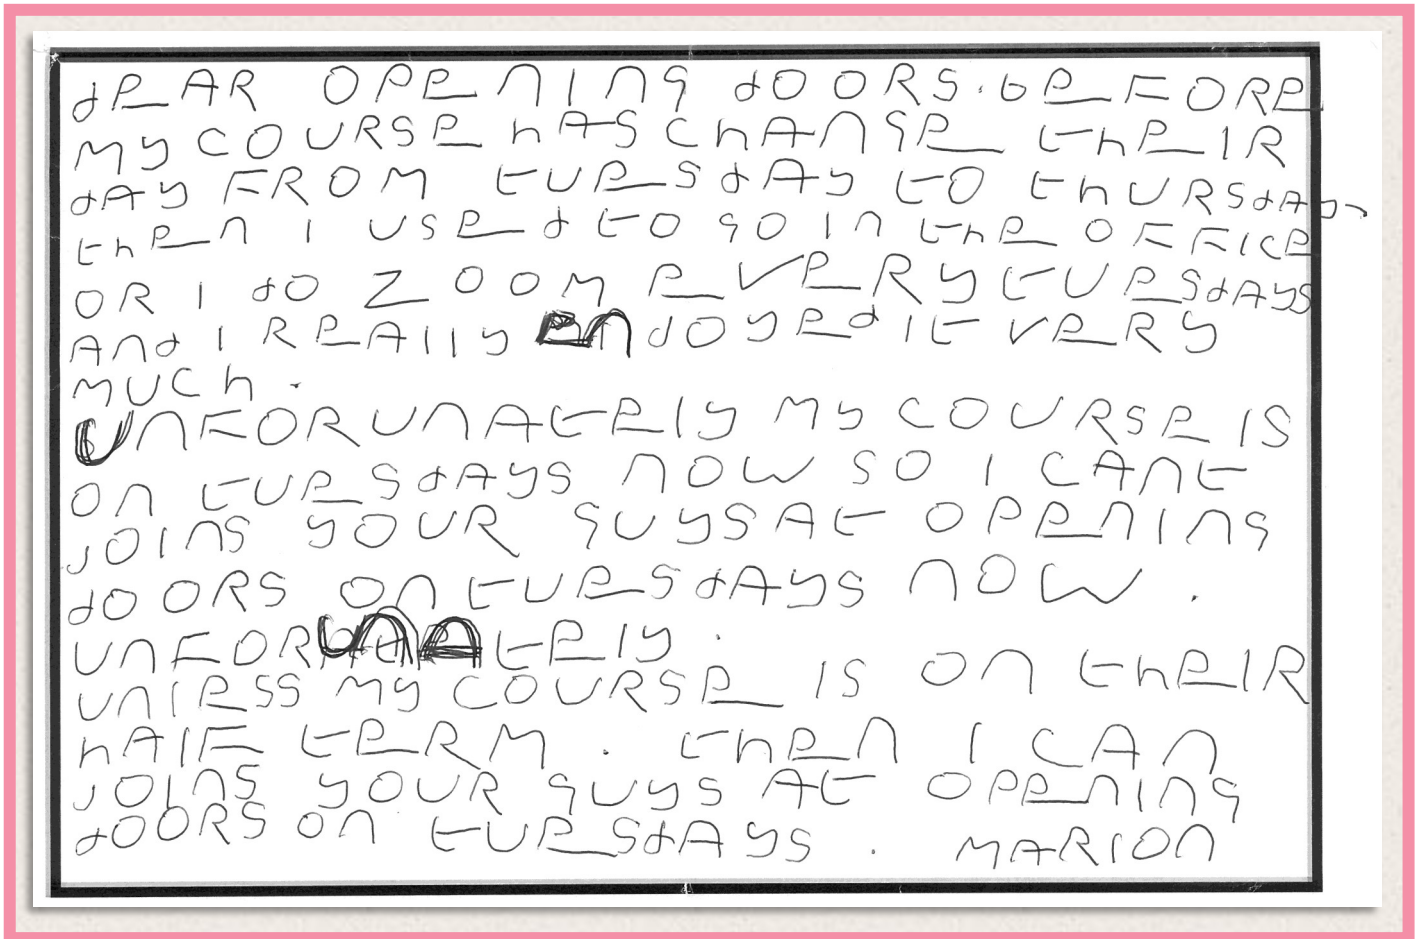 dEAR OPENING dOORS. bEFORE
My COURSE hAS ChANGE thEIR
dAy FROM tUESdAy tO thURSdAy
thEN I USEd tO GO IN thE OFFICE
OR I dO ZOOM EVERy tUESdAyS
ANd I REAlly ENdOyEd It VERy
MUCh.
UNFORUNAtEly My COURSE IS
ON tUESdAyS NOW SO I CANt
jOINS yOUR GUyS At OPENING
dOORS ON tUESdAyS NOW.
UNFORUNAtEly.
UNlESS My COURSE IS ON thEIR
hAlF tERM. thEN I CAN
jOINS yOUR GUyS At OPENING
dOORS ON tUESdAyS. MARION